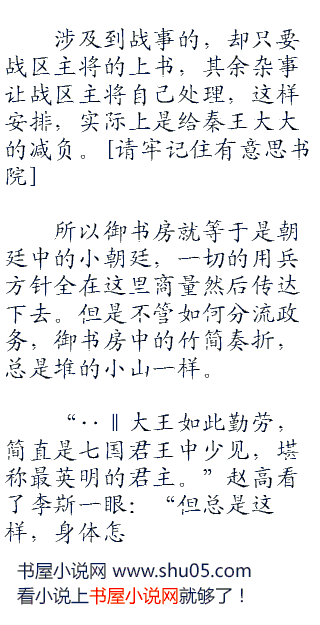 涉及到战事的，却只要
战区主将的上书，其余杂事
让战区主将自己处理，这样
安排，实际上是给秦王大大
的减负。[请牢记住有意思书
院]
所以御书房就等于是朝
廷中的小朝廷，一切的用兵
方针全在这里商量然后传达
下去。但是不管如何分流政
务，御书房中的竹简奏折，
总是堆的小山一样。
“··‖大王如此勤劳，
简直是七国君王中少见，堪
称最英明的君主。”赵高看
了李斯一眼：“但总是这
样，身体怎
书屋小说网 www.shu05.com
看小说上书屋小说网就够了！